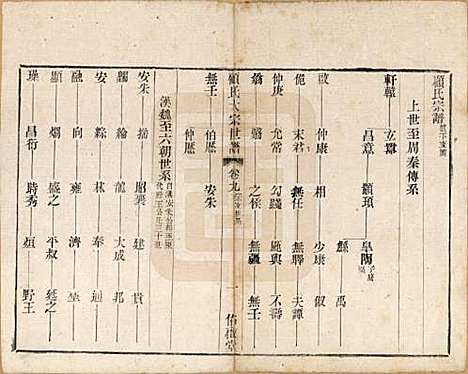 顧氏宗譜
上世至周秦傳系
軒轅 玄囂
昌意 顓頊 皋陶
鯀 禹
啟 仲康 少康 假
俺 末君 無任 無驛 夫譚
仲庚 允常 勾踐 與夷
翁 翳 之侯 無疆 無壬
顧氏大宗世譜 卷九 一 佑啟堂
無壬 伯厝
仲厝 安朱
漢魏至六朝世系
安朱 搖 昭襄 建 貴
觸 綸 龍 大成 邦
安 綜 林 奉 通
融 向 榮 濟 堃
顯 烱 盛之 平叔 延之
璪 昌衍 時秀 烜 野王